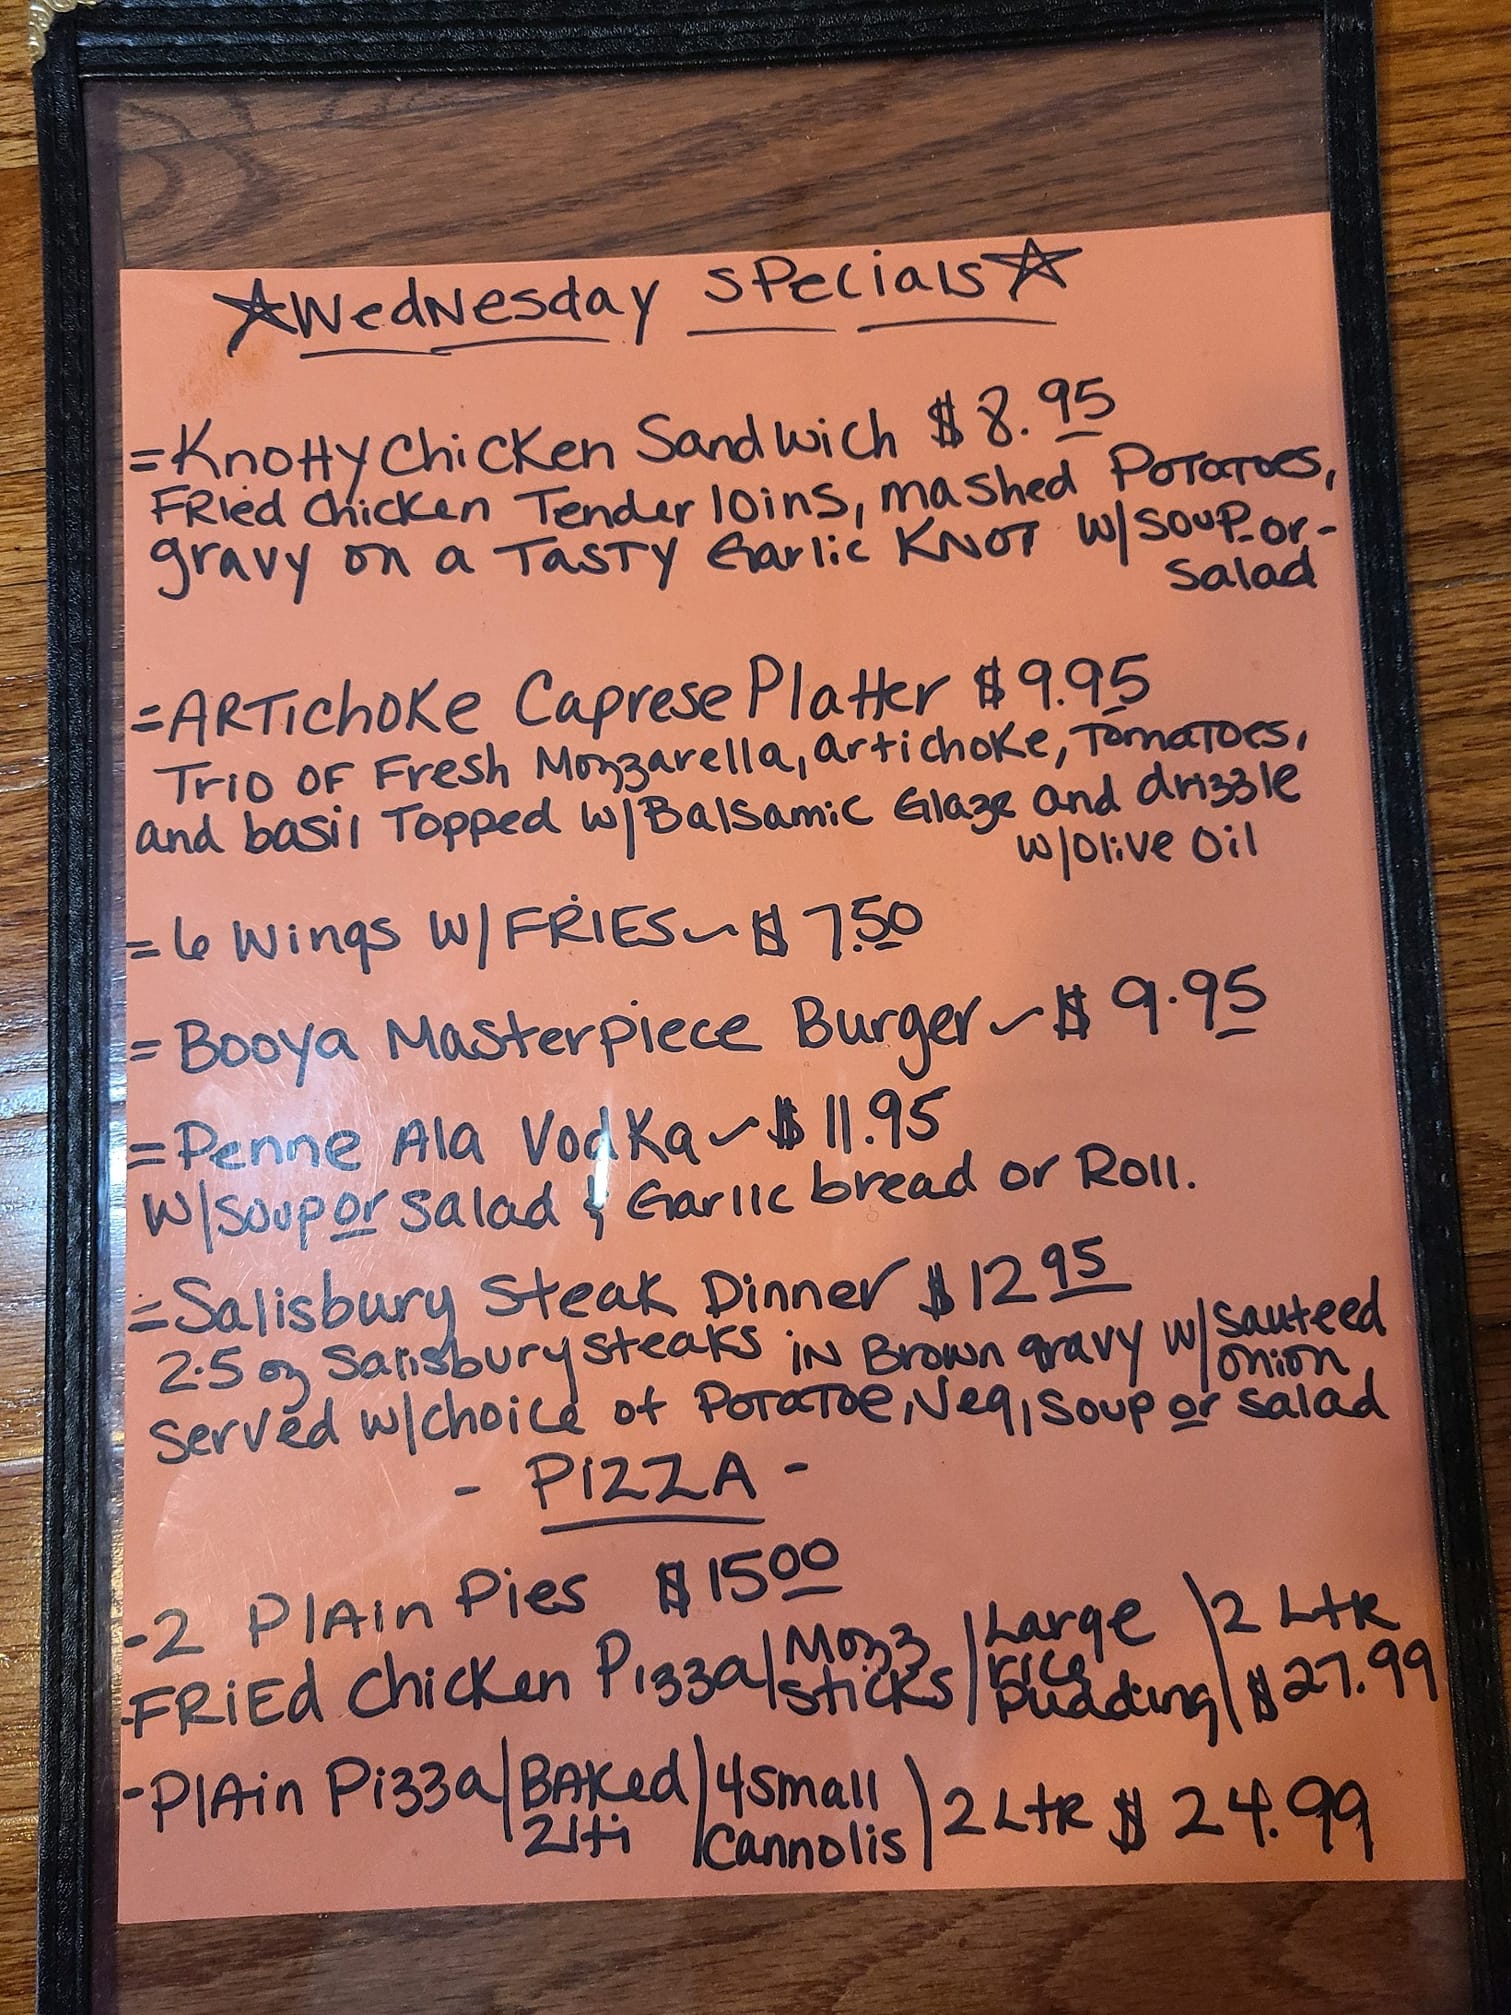 Wednesday Specials
=Knotty Chicken Sandwich $8.95
Fried Chicken Tenderloins, mashed Potatoes,
gravy on a Tasty Garlic Knot w/soup-or-
Salad
=Artichoke Caprese Platter $9.95
Trio of Fresh Mozzarella, artichoke, Tomatoes,
and basil Topped w/Balsamic Glaze and drizzle
w/Olive Oil
=6 Wings w/FRIES~$7.50
=Booya Masterpiece Burger~$9.95
=Penne Ala Vodka~$11.95
w/soup or salad & Garlic bread or Roll.
=Salisbury Steak Dinner $12.95
2-5 oz Salisbury steaks in Brown gravy w/sauteed
onion
served w/choice of Potatoe, Veg, soup or salad
- PIZZA -
-2 Plain Pies $15.00
-Fried Chicken Pizza/Mozz sticks/Large rice pudding/2 Ltr $27.99
-Plain Pizza/Baked ziti/4 small cannolis/2 Ltr $24.99